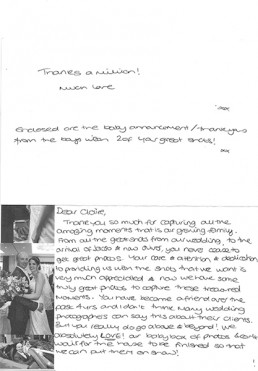 Thanks a Million!
Much love
xxx
Enclosed are the baby announcement/thankyous
from the boys with 2 of your great shots!
xx
Dear Claire,
Thank you so much for capturing all the
amazing moments that is our growing family.
From all the great shots from our wedding, to the
arrival of Jacob & now, you never cease to
get great photos. Your care & attention & dedication
to providing us with the shots that we want is
very much appreciated & now we have some
truly great photos to capture these treasured
moments. You have become a friend over the
past 4yrs and I don't think many wedding
photographers can say this about their clients.
But you really do go above & beyond! We
absolutely LOVE! our baby box of photos & can't
wait for the house to be finished so that
we can put them on show!